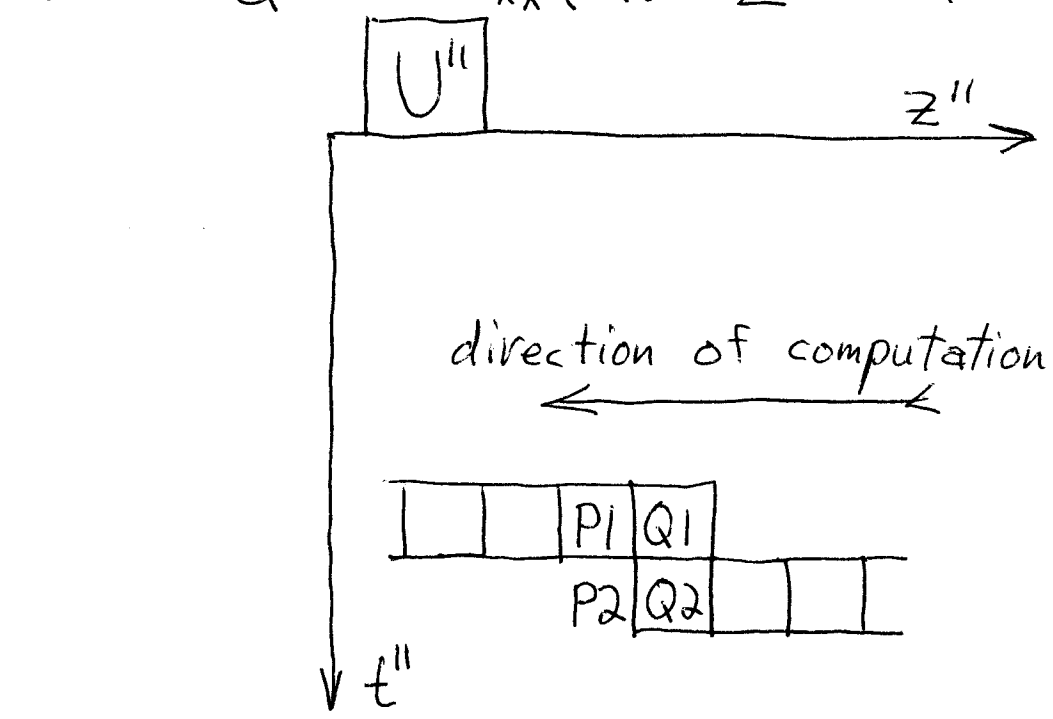 U"
z"
direction of computation
P1 Q1
P2 Q2
t"